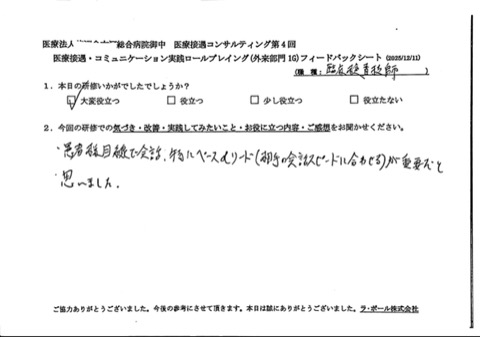 医療法人 総合病院御中 医療接遇コンサルティング第4回
医療接遇・コミュニケーション実践ロールプレイング(外来部門1G)フィードバックシート (2025/12/11)
(職種: 臨床検査技師 )
1.本日の研修いかがでしたでしょうか?
☑ 大変役立つ □ 役立つ □ 少し役立つ □ 役立たない
2.今回の研修での気づき・改善・実践してみたいこと・お役に立つ内容・ご感想をお聞かせください。
・患者様目線で会話、特にペース&リード(相手の会話スピードに合わせる)が重要だと
思いました。
ご協力ありがとうございました。今後の参考にさせて頂きます。本日は誠にありがとうございました。ラ・ポール株式会社